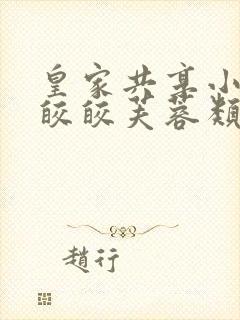 皇家共享小
皎皎芙蓉類
趙行